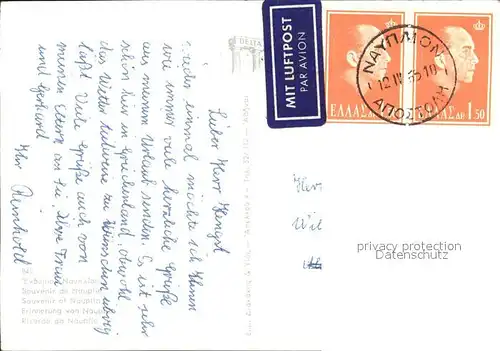 Lieber Herr Hengst
wieder einmal möchte ich Ihnen
wie immer viele herzliche Grüße
aus meinem Urlaub senden. Es ist sehr
schön hier in Griechenland, obwohl
das Wetter teilweise zu wünschen übrig
läßt. Viele Grüße auch von
meinen Eltern an Sie, Ihre Frau
und Gerhard
Ihr Reinhold
Souvenir de Nauplie
Souvenir of Nauplia
Erinnerung von Nauplia
Ricordo da Nauplia
MIT LUFTPOST
PAR AVION
ΕΛΛΑΣ
ΕΛΛΑΣ ΔΡ 1.50
ΝΑΥΠΛΙΟΝ
12 IV 65 10
ΑΠΟΣΤΟΛΗ
Herr
Wil
privacy protection
Datenschutz